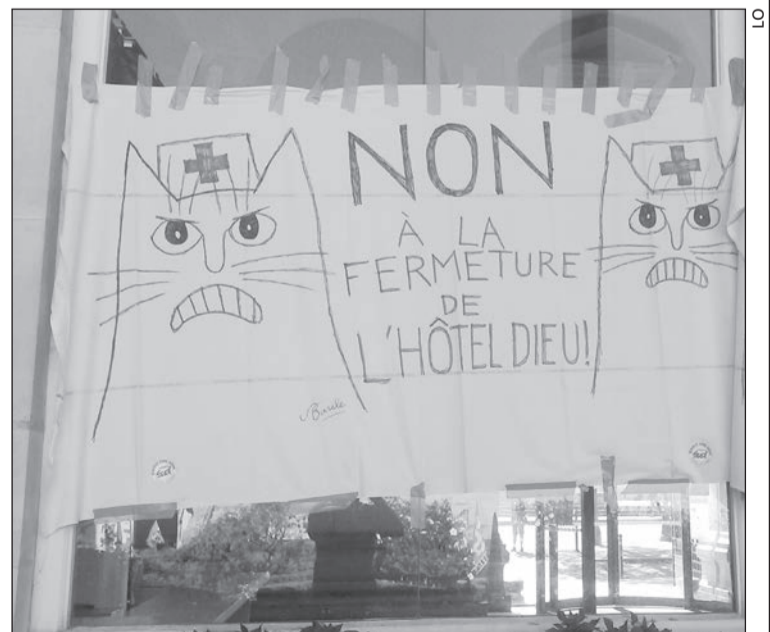 NON
À LA
FERMETURE
DE
L'HÔTEL DIEU!
LO